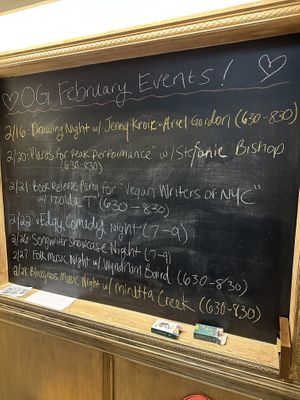 OG February Events!
2/16: Drawing Night w/ Jenny Kroik + Ariel Gordon (630-830)
2/20: Plants for Peak Performance w/ Stefanie Bishop
(630-830)
2/21: Book Release Party for "Vegan Writers of NYC"
w/ Izolda T (630-830)
2/22: vEdgy Comedy Night (7-9)
2/26: Songwriter Showcase Night (7-9)
2/27 Folk Music Night w/ Wyndham Baird (630-830)
2/28 Bluegrass Music Night w/ Minetta Creek (630-830)